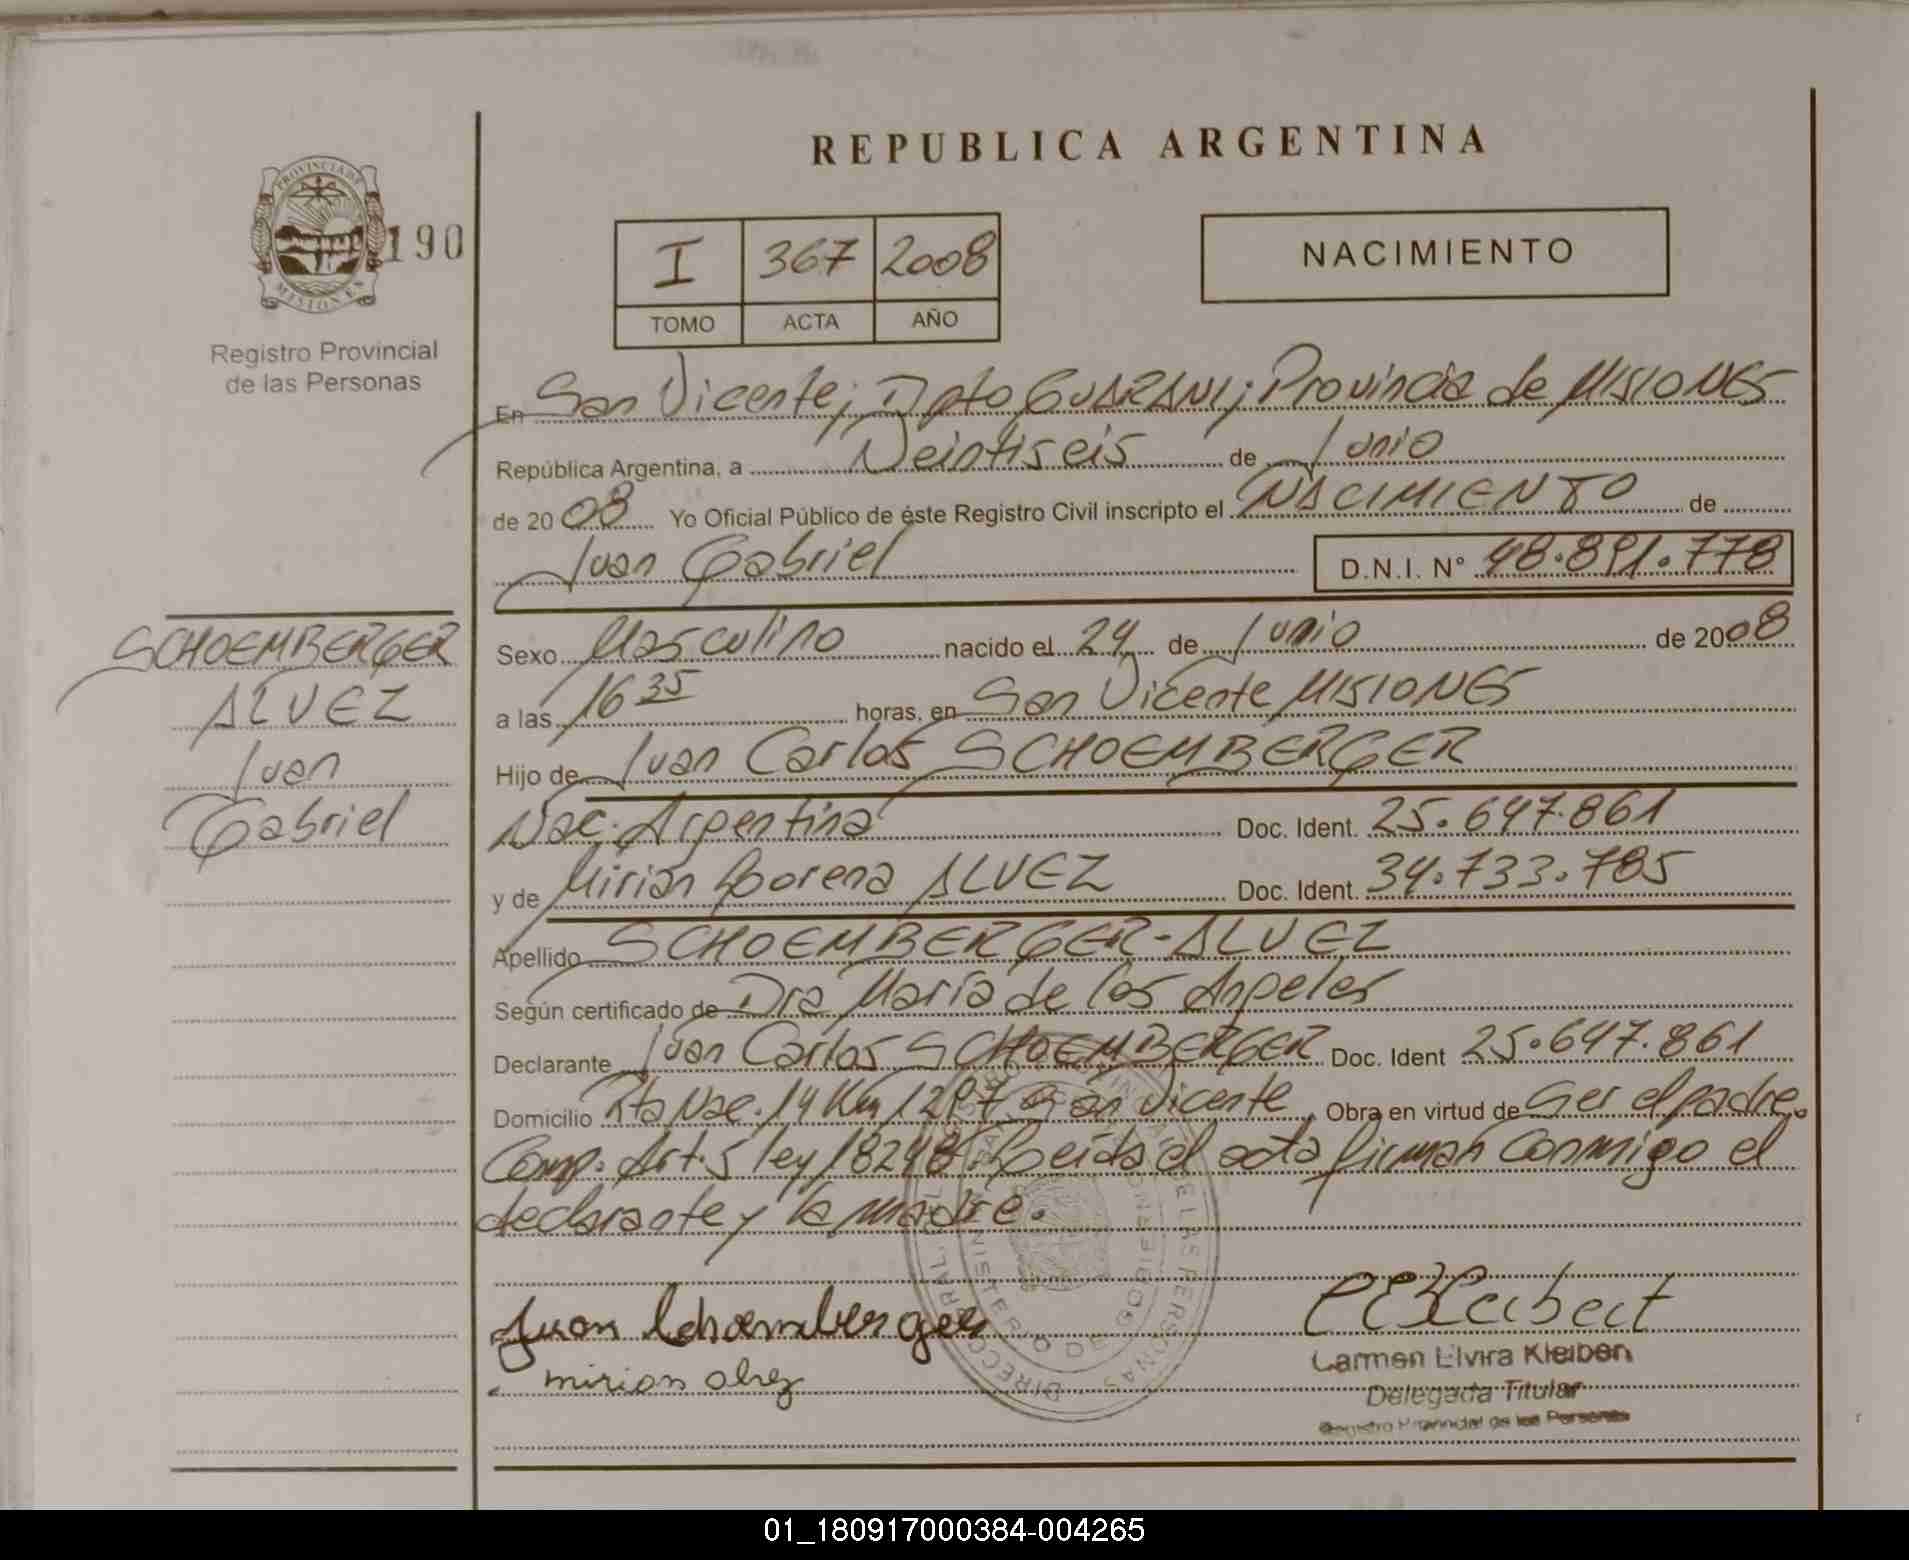 REPUBLICA ARGENTINA
PROVINCIA DE
MISIONES
190
Registro Provincial
de las Personas
I 367 2008
TOMO ACTA AÑO
NACIMIENTO
En San Vicente; Dpto GUARANI; Provincia de MISIONES
República Argentina, a Veintiseis de Junio
de 2008 Yo Oficial Público de éste Registro Civil inscripto el NACIMIENTO de
Juan Gabriel D.N.I. Nº 48.891.778
SCHOEMBERGER
ALVEZ
Juan
Gabriel
Sexo Masculino nacido el 24 de Junio de 2008
a las 16 35 horas, en San Vicente MISIONES
Hijo de Juan Carlos SCHOEMBERGER
Nac. Argentina Doc. Ident. 25.647.861
y de Mirian Lorena ALVEZ Doc. Ident. 34.733.785
Apellido SCHOEMBERGER-ALVEZ
Según certificado de Dra María de los Angeles
Declarante Juan Carlos SCHOEMBERGER Doc. Ident 25.647.861
Domicilio Rta Nac. 14 Km 1297 San Vicente Obra en virtud de ser el padre.
Comp. Art. 5 ley 18248. Leída el acta firman conmigo el
declarante y la madre.
Juan Schoemberger
mirian alvez
Carmen Elvira Kleiben
Delegada Titular
Registro Provincial de las Personas
DE LAS PERSONAS
MINISTERIO DE GOBIERNO
01_180917000384-004265